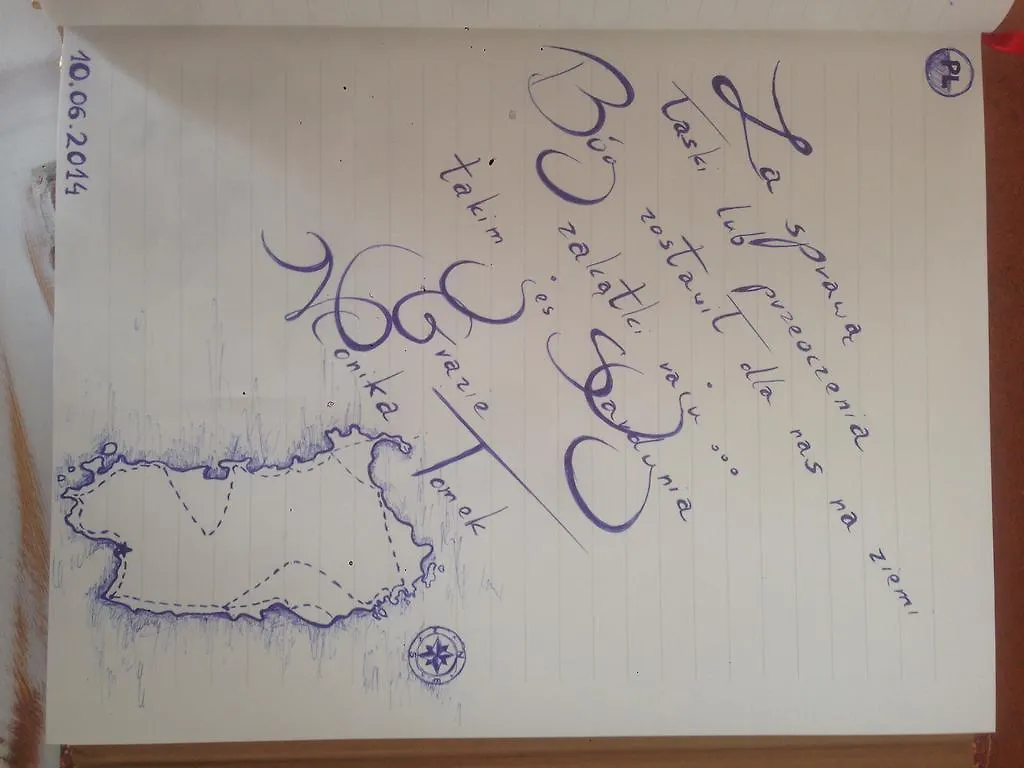 PL
Za sprawą
łaski lub przeoczenia
Bóg zostawił dla nas na ziemi
zakątki raju...
takim jes Sardynia
Grazie
Monika Tomek
N
S
E
10.06.2014